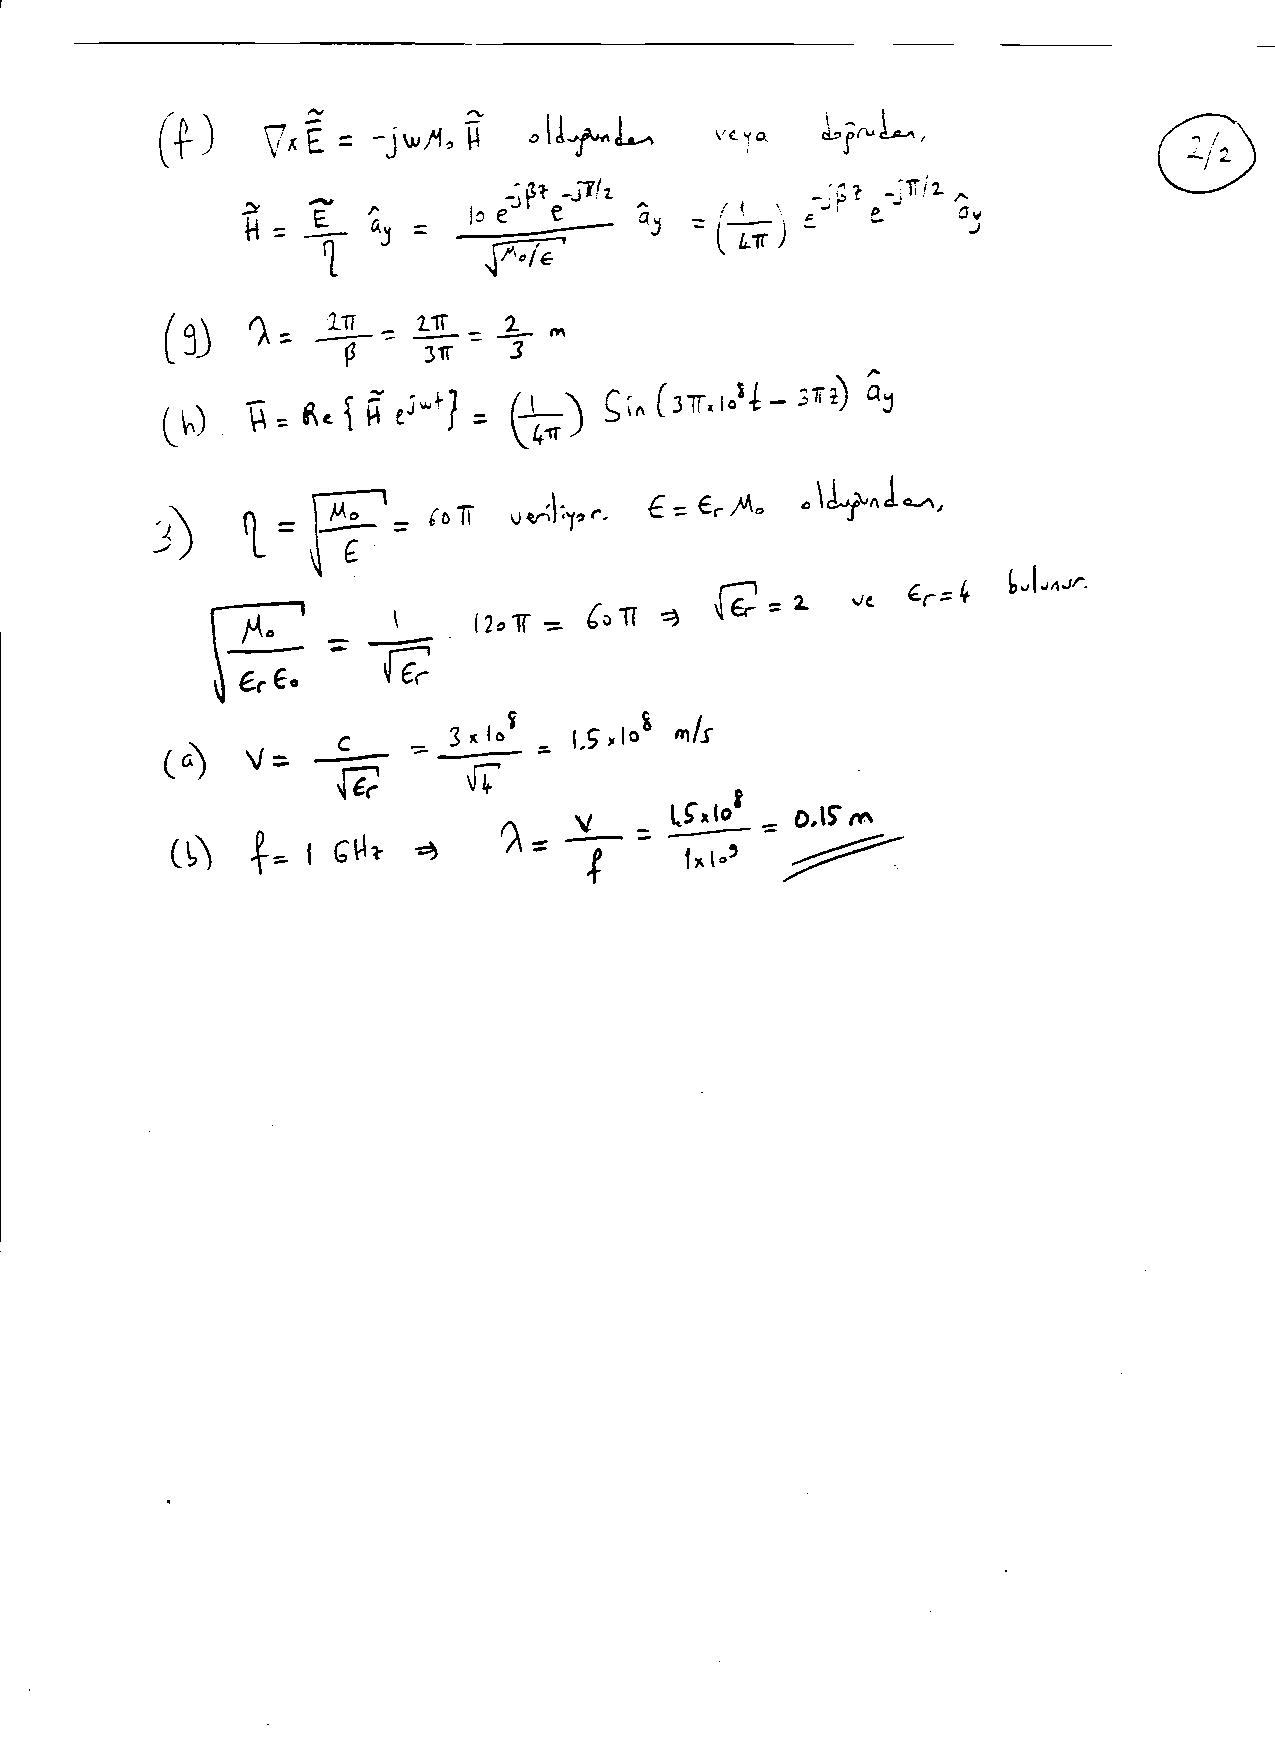 (f) ∇×Ẽ = -jωμ₀ H̃ olduğundan veya doğrudan,
2/2
H̃ = Ẽ/η ây = 10 e^(-jβz) e^(-jπ/2) / √(μ₀/ϵ) ây = (1/4π) e^(-jβz) e^(-jπ/2) ây
(g) λ = 2π/β = 2π/3π = 2/3 m
(h) H̄ = Re{H̃ e^(jωt)} = (1/4π) Sin(3π×10⁸t - 3πz) ây
3) η = √(μ₀/ϵ) = 60π veriliyor. ϵ = ϵr μ₀ olduğundan,
√(μ₀/ϵrϵ₀) = 1/√ϵr . 120π = 60π ⇒ √ϵr = 2 ve ϵr=4 bulunur.
(a) V = c/√ϵr = 3×10⁸/√4 = 1.5×10⁸ m/s
(b) f = 1 GHz ⇒ λ = V/f = 1.5×10⁸/1×10⁹ = 0.15 m